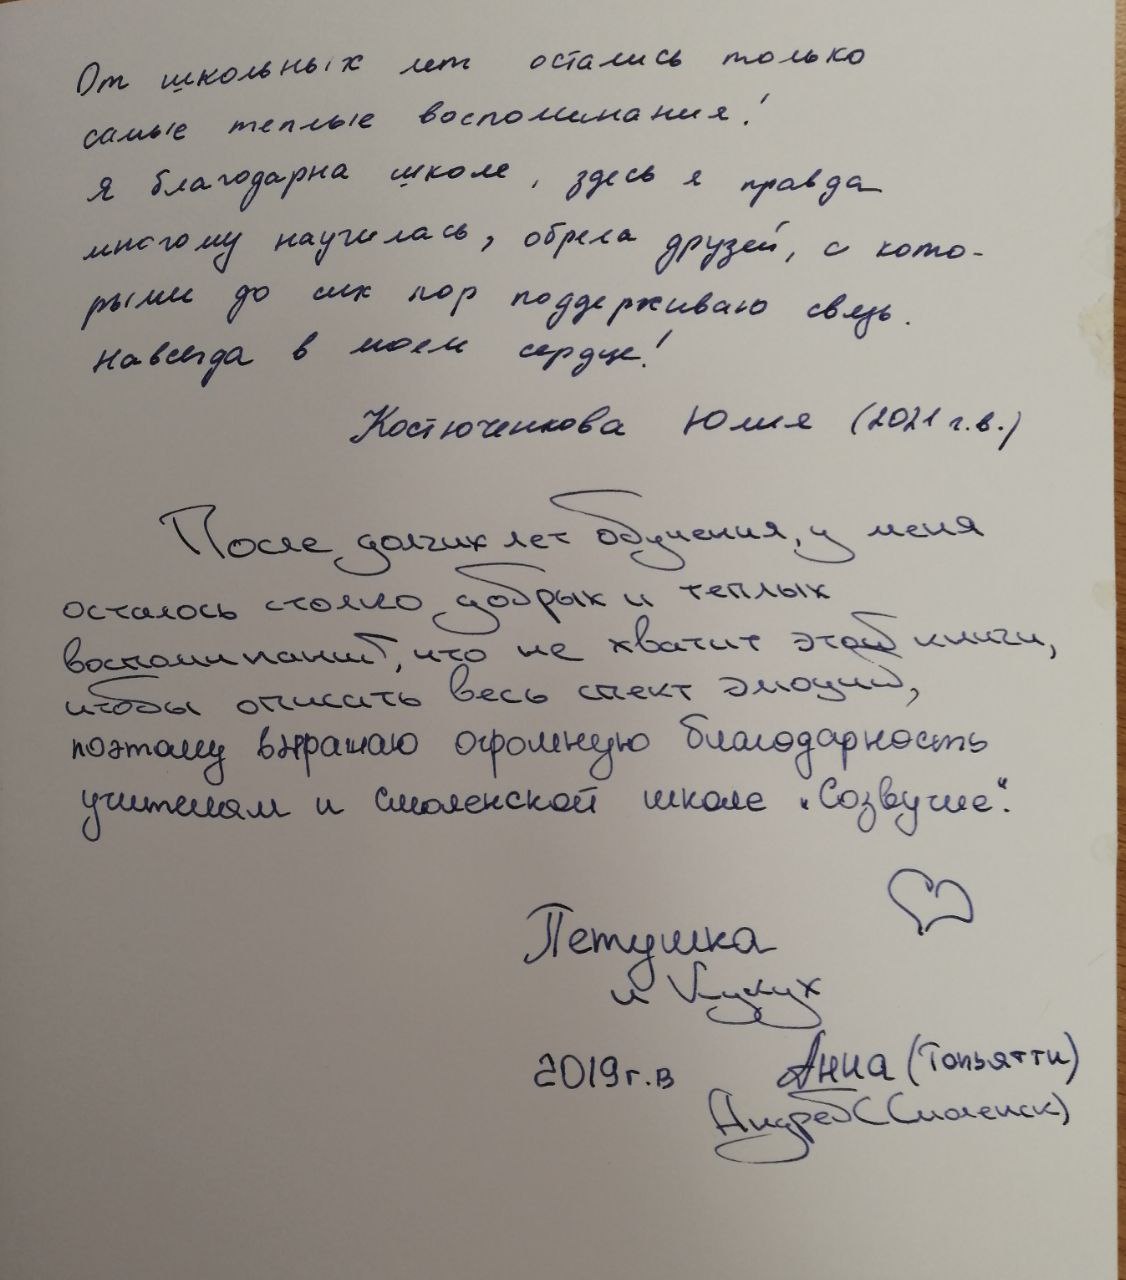 От школьных лет остались только
самые теплые воспоминания!
Я благодарна школе, здесь я правда
многому научилась, обрела друзей, с кото-
рыми до сих пор поддерживаю связь.
Навсегда в моем сердце!
Костюченкова Юлия (2021 г.в.)
После долгих лет обучения, у меня
осталось столко добрых и теплых
воспоминаний, что не хватит этой книги,
чтобы описать весь спект эмоций,
поэтому выражаю огромную благодарность
учителям и смоленской школе „Созвучие“.
Петушка
и Кукух
2019 г.в Анна (Тольятти)
Андрей (Смоленск)